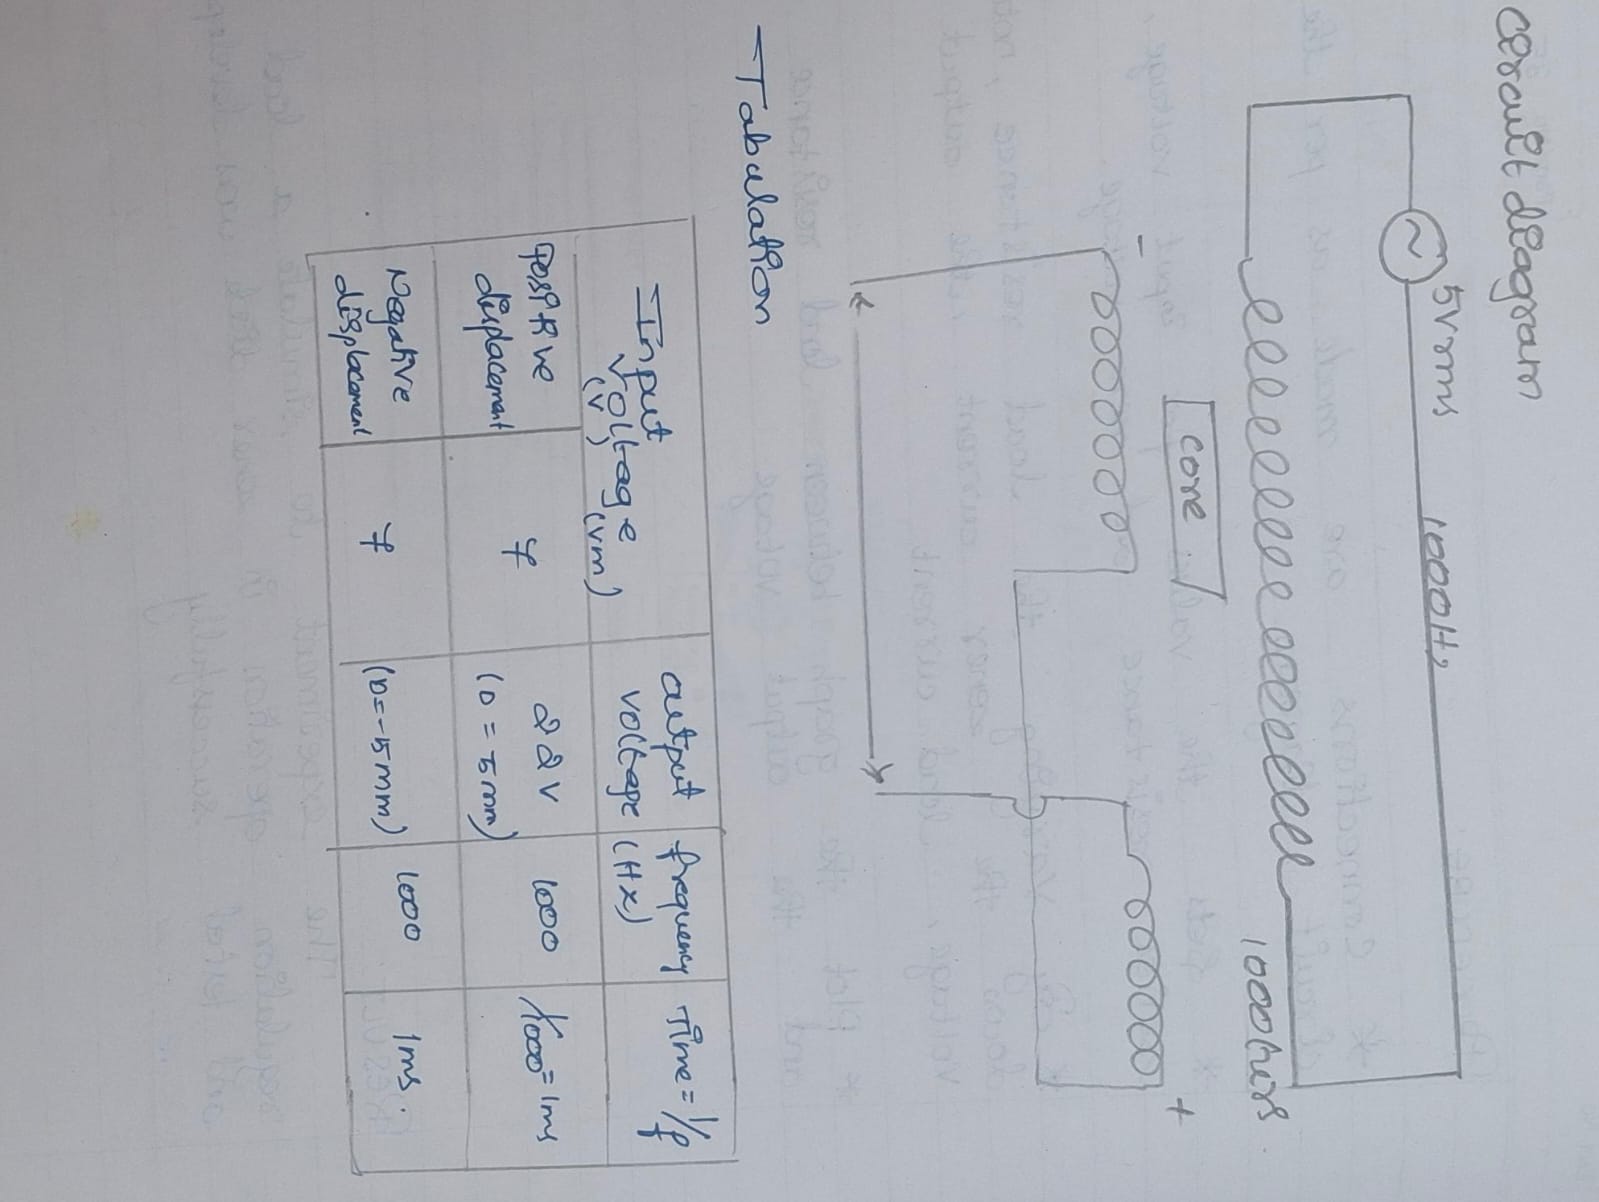 Circuit diagram
5Vrms 1000Hz
core
1000Hz
- +
Tabulation
Input Voltage (V) (Vm)
output voltage
frequency (Hz)
Time = 1/f
Positive displacement
4
22V (D = 5mm)
1000
1/1000 = 1ms
Negative displacement
4
(D = -5mm)
1000
1ms.